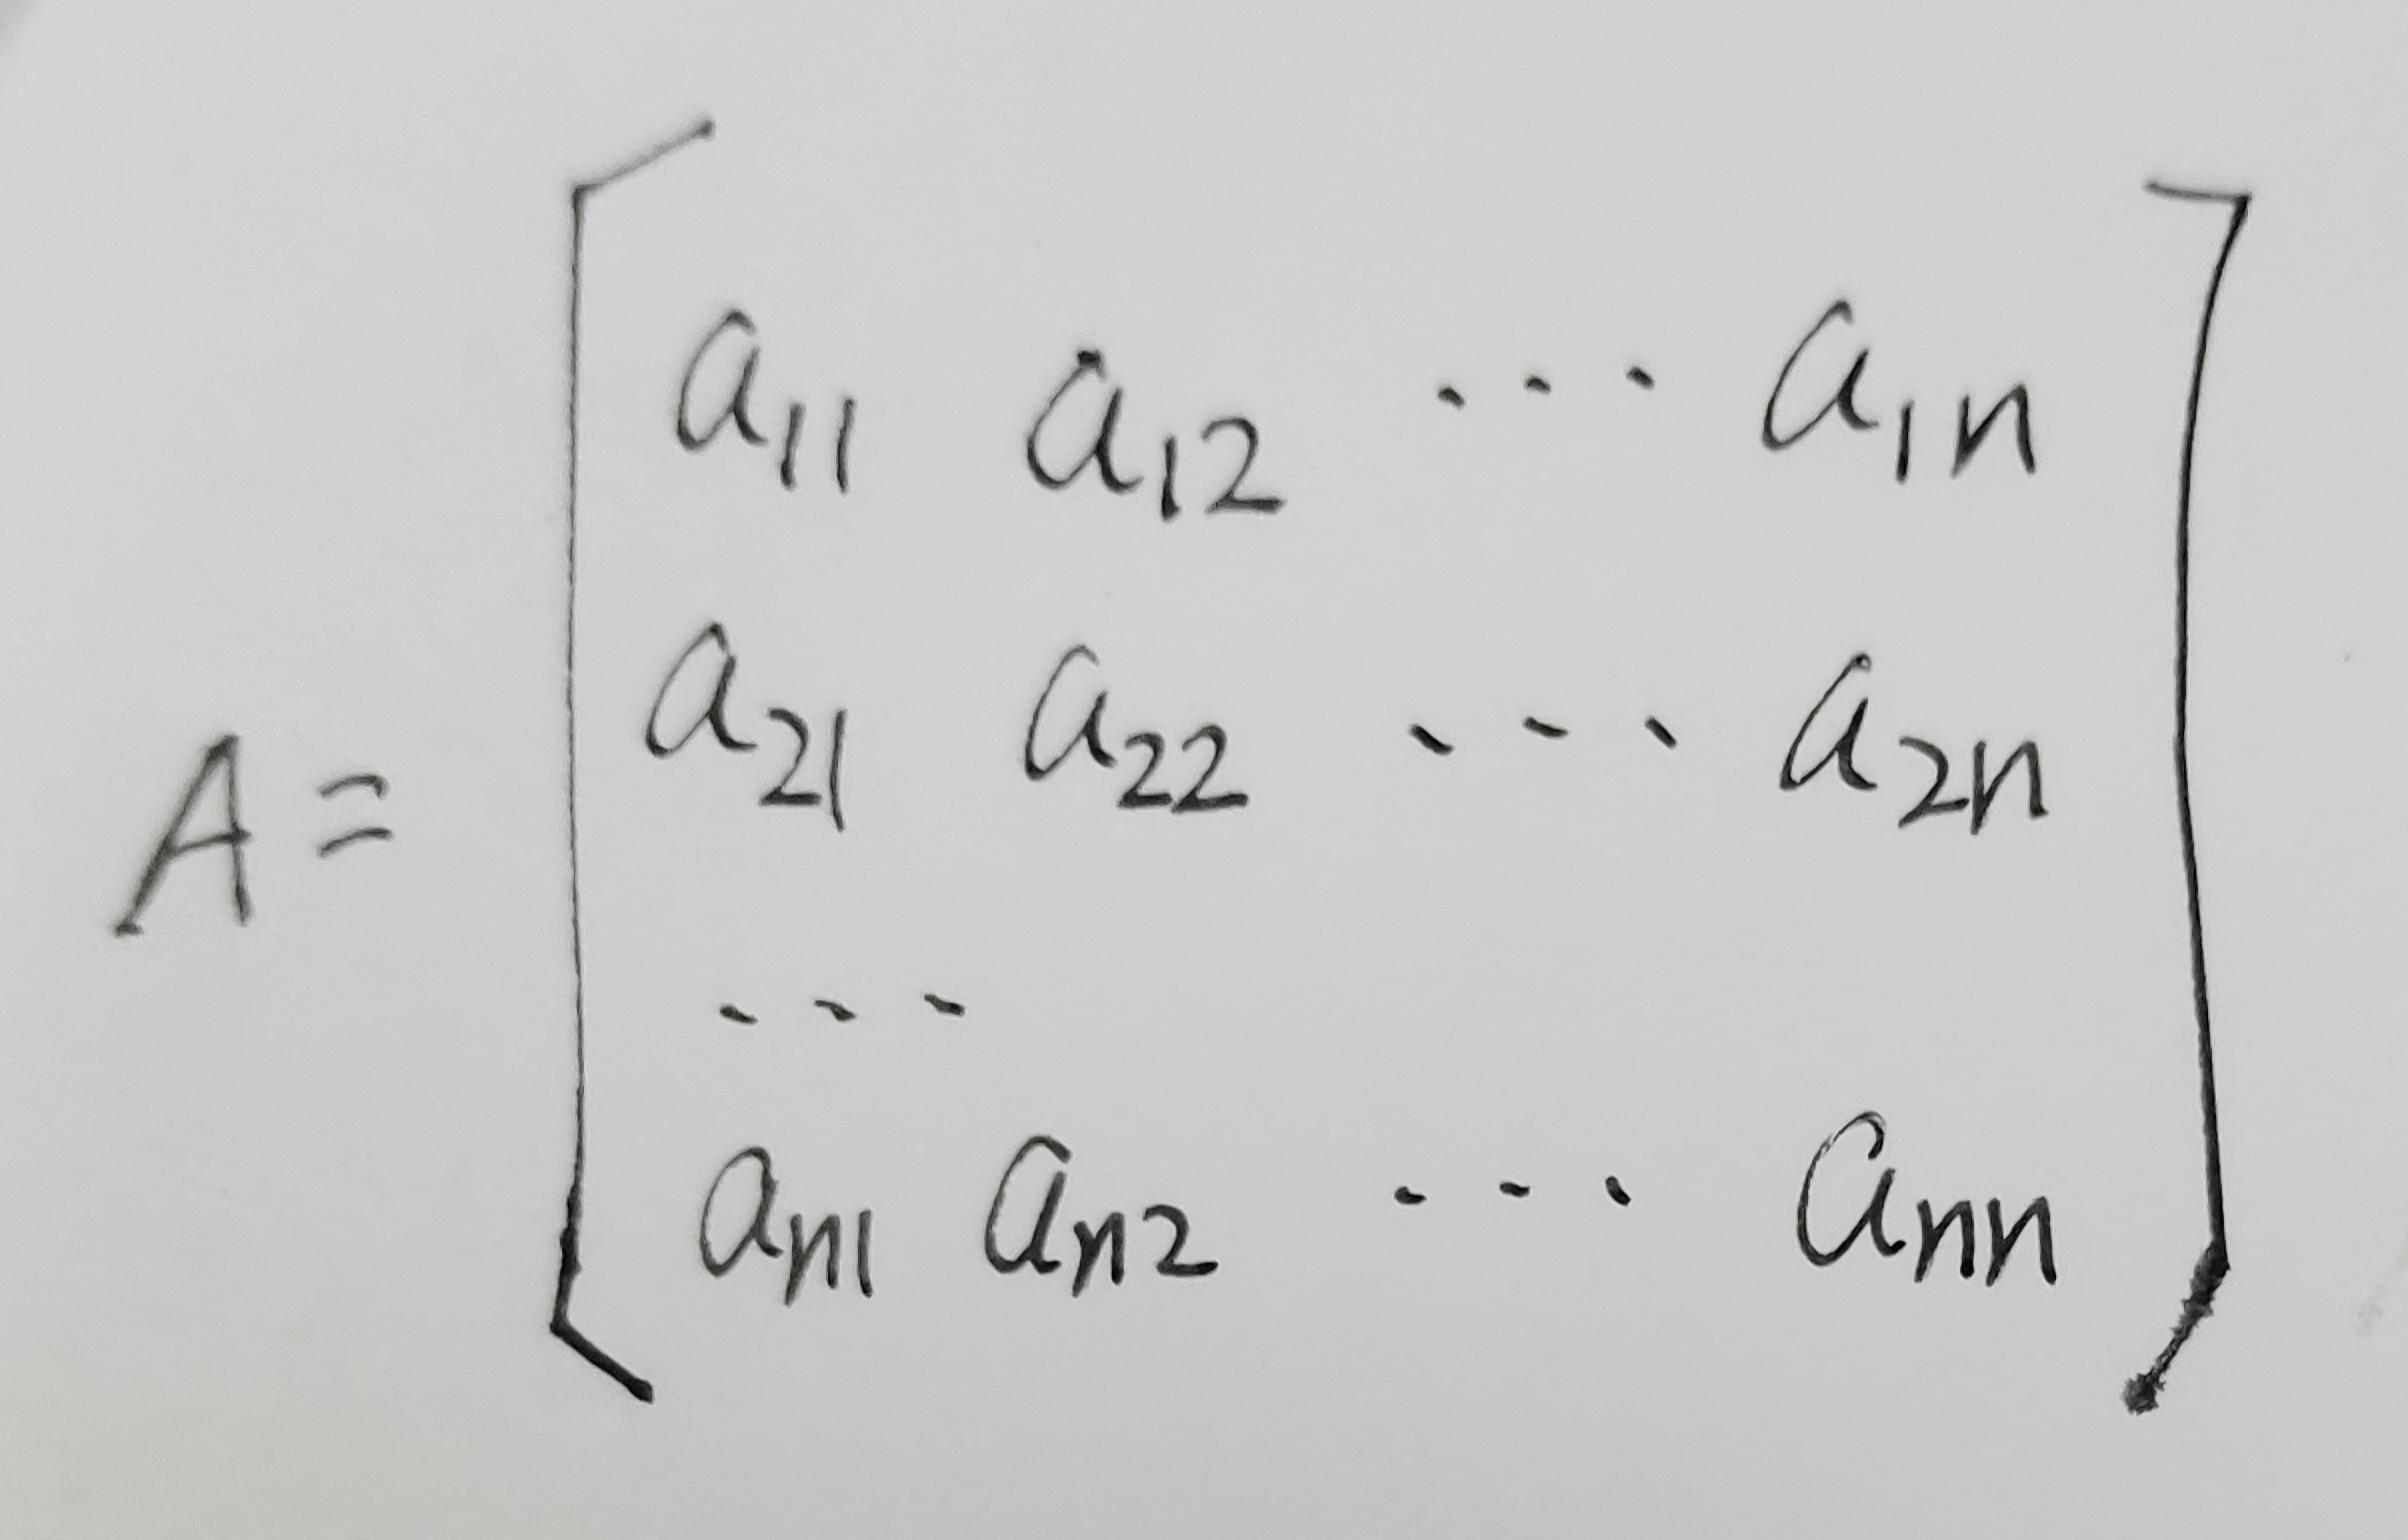 A = [
a11 a12 ... a1n
a21 a22 ... a2n
...
an1 an2 ... ann
]